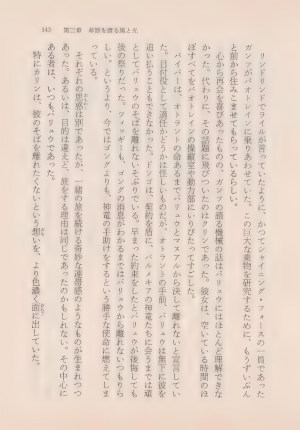 145　第三章　命路を渡る風と光
リンドリンドでライカが言っていたように、かつてシャイニング・フォースの一員であった
ガンツがバオトレインに乗りあわせていた。この巨大な乗物を研究するために、もうずいぶん
と前から住みこませてもらっているらしい。
心から再会を喜びあったものの、ガンツの語る機械の話はバリュウにはほとんど理解できな
かった。代わりに、その話題に飛びついたのはクリンであった。彼女は、空いている時間のほ
ぼすべてをバオトレインの操縦室や動力部にいりびたってすごした。
バイパーは、オトラントの命あるまでバリュウとマスアルから決して離れないと宣言してい
た。目付役として適任かどうかは怪しいものだが、オトラントの手前、バリュウは無下に彼を
追い払うこともできなかった。ドンゴは、契約を盾に、バルネキアの神竜たちに会うまでは頑
としてバリュウのそばを離れそうにない。早まった約束をしたとバリュウが後悔しても
後の祭りだった。フィッギも、ゴングの消息がわかるまではバリュウから離れないつもりら
しい。というより、今ではゴングよりも、神竜の手助けをするという勝手な使命に燃えてしま
っている。
それぞれの思惑は別であったが、一緒の旅を続ける奇妙な連帯感のようなものが生まれつつ
あった。あるいは、目的は違えど、旅をする理由は同じであったのかもしれない。その中心に
ある者は、いつもバリュウであった。
特にカリンは、彼のそばを離れたくないという想いを、より色濃く面に出していた。